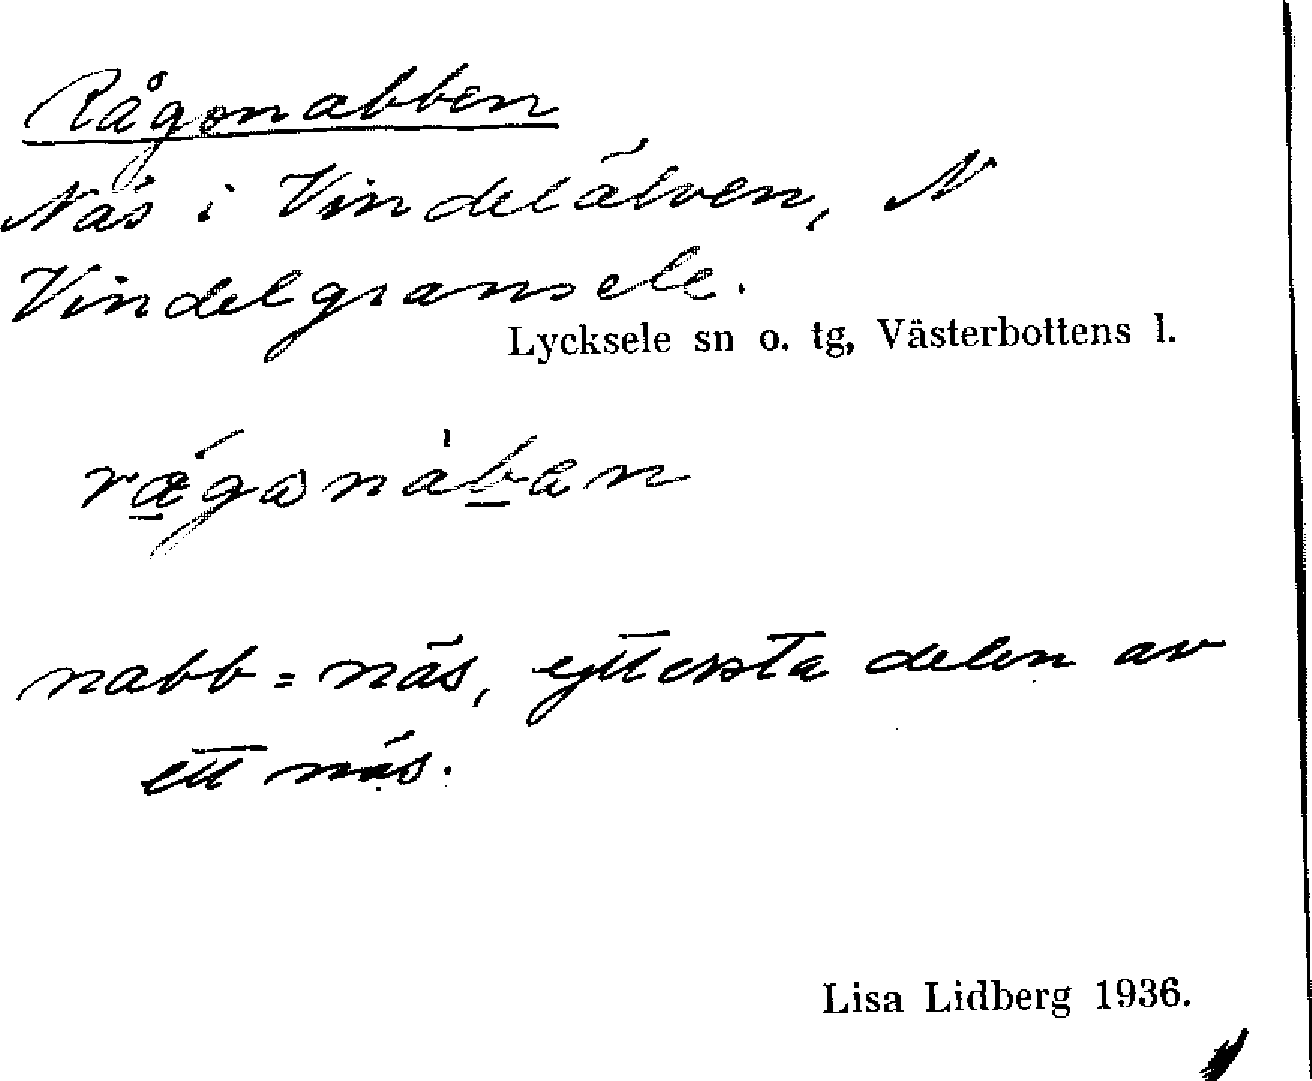 Rågonabben
Näs i Vindelälven, N
Vindelgransele.
Lycksele sn o. tg, Västerbottens l.
nabb = näs, yttersta delen av
ett näs.
Lisa Lidberg 1936.